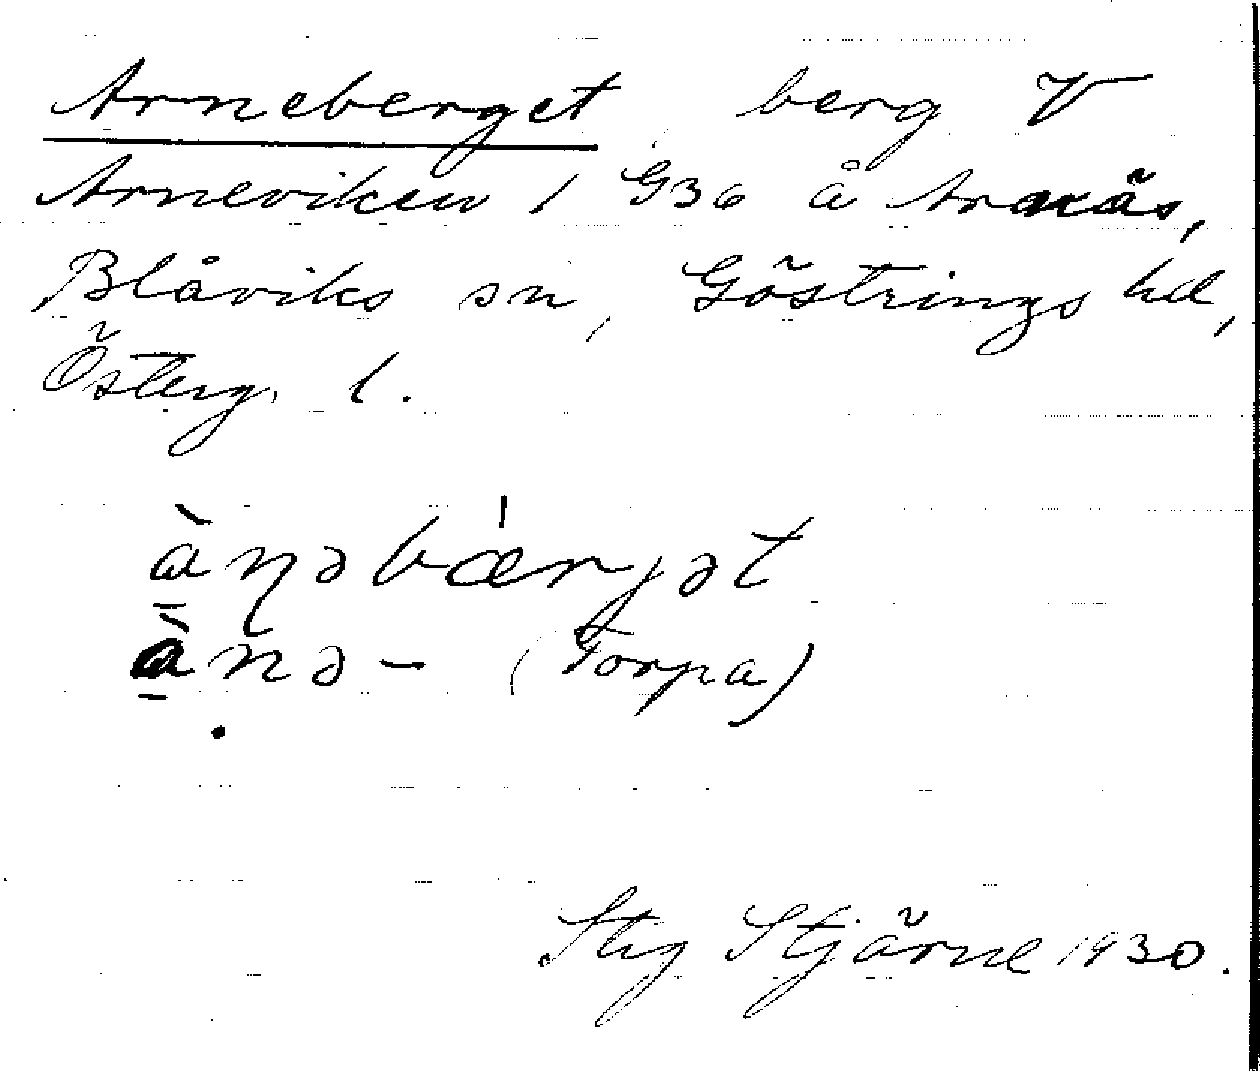 Arneberget berg V
Arneviken / G36 å Arnäs,
Blåviks sn, Göstrings hd,
Österg. l.
ànəbǽrjət
ànə- (Torpa)
Stig Stjärne 1930.